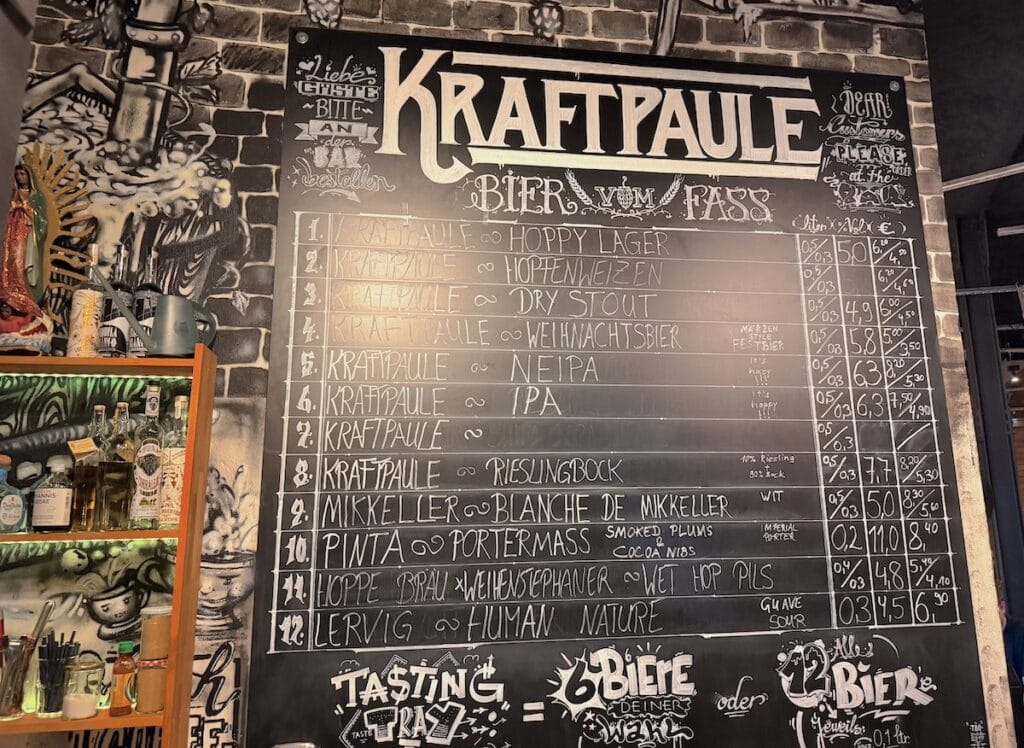 Liebe
GÄSTE
BITTE
AN
der
BAR
bestellen
KRAFTPAULE
DEAR
Customers
PLEASE
at the
BIER VOM FASS
(liter x %Vol x €)
1. KRAFTPAULE ∾ HOPPY LAGER 0,5/0,3 5,0
2. KRAFTPAULE ∾ HOPFENWEIZEN 0,5/0,3 6,20/4,60
3. KRAFTPAULE ∾ DRY STOUT 0,5/0,3 4,9
4. KRAFTPAULE ∾ WEIHNACHTSBIER MÄRZEN STYLE FESTBIER 0,5/0,3 5,8 5,00/3,50
5. KRAFTPAULE ∾ NEIPA it's hazy !!! 0,5/0,3 6,3 8,20/5,30
6. KRAFTPAULE ∾ IPA it's hoppy !!! 0,5/0,3 6,3 7,50/4,90
7. KRAFTPAULE ∾ 0,5/0,3
8. KRAFTPAULE ∾ RIESLINGBOCK Riesling + Bock 0,5/0,3 7,7 8,20/5,30
9. MIKKELLER ∾ BLANCHE DE MIKKELLER WIT 0,5/0,3 5,0 8,30/5,60
10. PINTA ∾ PORTERMASS SMOKED PLUMS & COCOA NIBS IMPERIAL PORTER 0,2 11,0 8,40
11. HOPPE BRÄU x WEIHENSTEPHANER ∾ WET HOP PILS 0,4/0,3 4,8 5,40/4,10
12. LERVIG ∾ HUMAN NATURE GUAVE SOUR 0,3 4,5 6,90
TASTING
TRAY
=
6 BIERE
DEINER
WAHL
oder
Alle
12 BIER
jeweils 0,1 ltr